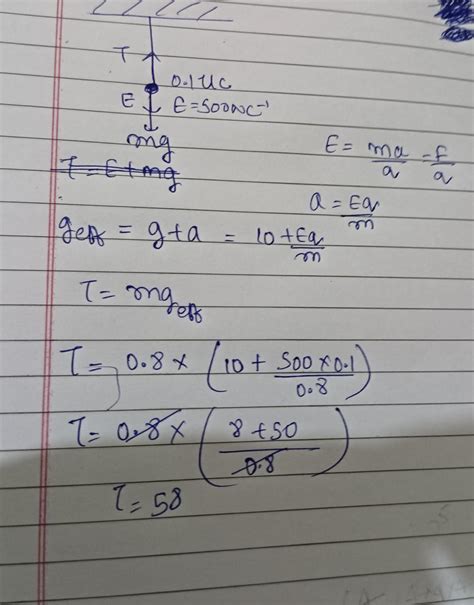 T
0.1 uc
E E = 500 NC⁻¹
mg
T = E + mg
E = ma/q = F/q
a = Eq/m
g_eff = g + a = 10 + Eq/m
T = mg_eff
T = 0.8 × (10 + 500 × 0.1/0.8)
T = 0.8 × (8 + 50/0.8)
T = 58